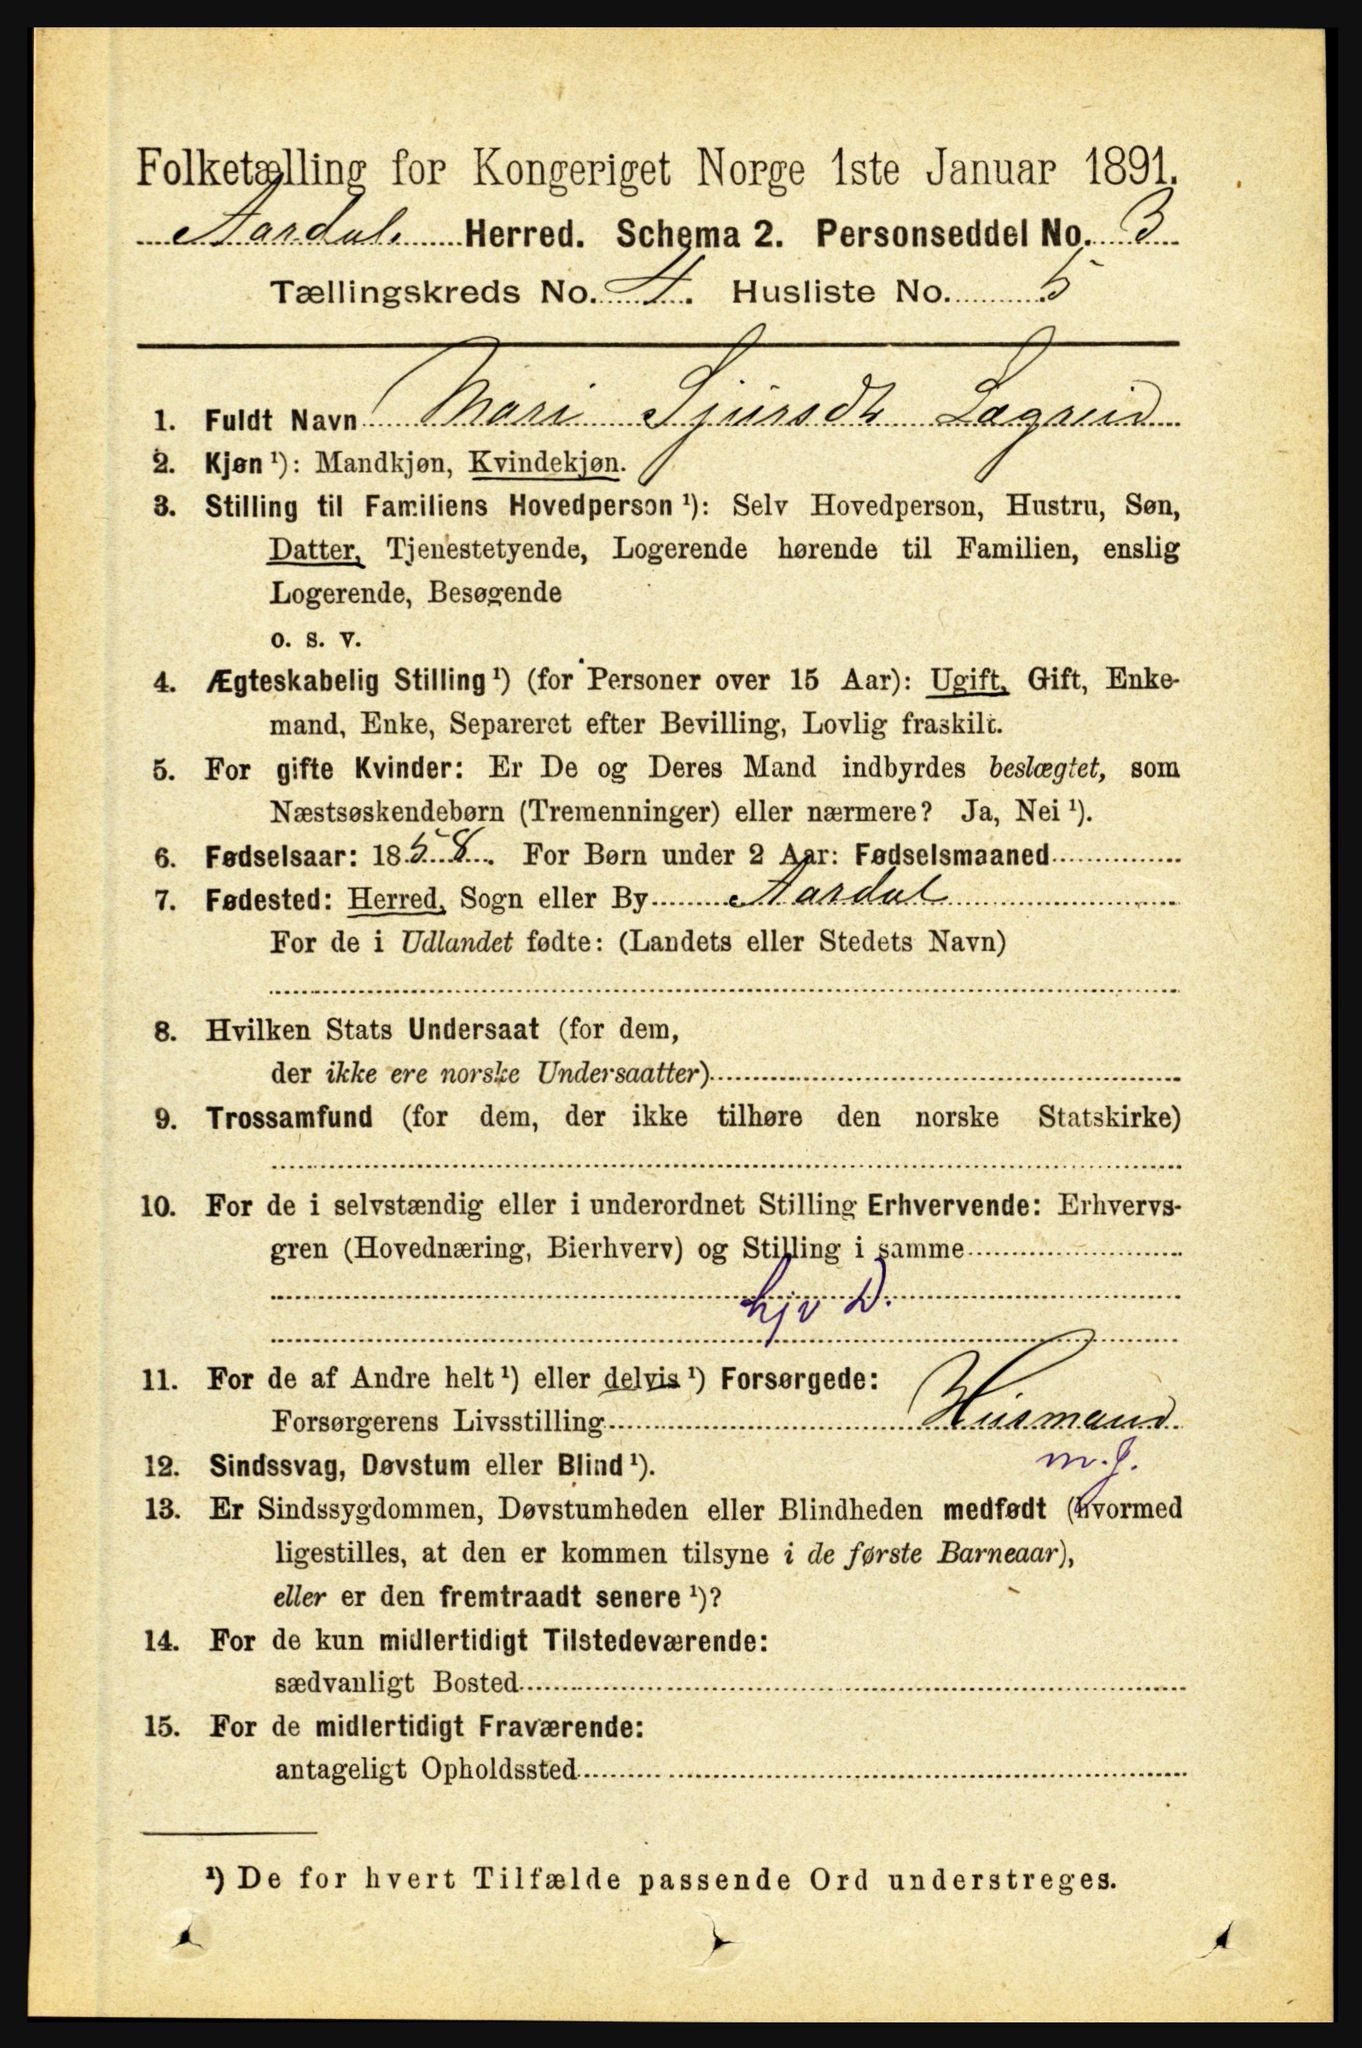 Folketælling for Kongeriget Norge 1ste Januar 1891.
Aardal Herred. Schema 2. Personseddel No. 3
Tællingskreds No. 4. Husliste No. 5
1. Fuldt Navn Mari Sjursdt Lægreid
2. Kjøn ¹): Mandkjøn, Kvindekjøn.
3. Stilling til Familiens Hovedperson ¹): Selv Hovedperson, Hustru, Søn,
Datter, Tjenestetyende, Logerende hørende til Familien, enslig
Logerende, Besøgende
o. s. v.
4. Ægteskabelig Stilling ¹) (for Personer over 15 Aar): Ugift, Gift, Enke-
mand, Enke, Separeret efter Bevilling, Lovlig fraskilt.
5. For gifte Kvinder: Er De og Deres Mand indbyrdes beslægtet, som
Næstsøskendebørn (Tremenninger) eller nærmere? Ja, Nei ¹).
6. Fødselsaar: 1858. For Børn under 2 Aar: Fødselsmaaned
7. Fødested: Herred, Sogn eller By Aardal
For de i Udlandet fødte: (Landets eller Stedets Navn)
8. Hvilken Stats Undersaat (for dem,
der ikke ere norske Undersaatter)
9. Trossamfund (for dem, der ikke tilhøre den norske Statskirke)
10. For de i selvstændig eller i underordnet Stilling Erhvervende: Erhvervs-
gren (Hovednæring, Bierhverv) og Stilling i samme
hjv D.
11. For de af Andre helt ¹) eller delvis ¹) Forsørgede:
Forsørgerens Livsstilling Husmand
m. J.
12. Sindssvag, Døvstum eller Blind ¹).
13. Er Sindssygdommen, Døvstumheden eller Blindheden medfødt (hvormed
ligestilles, at den er kommen tilsyne i de første Barneaar),
eller er den fremtraadt senere ¹)?
14. For de kun midlertidigt Tilstedeværende:
sædvanligt Bosted
15. For de midlertidigt Fraværende:
antageligt Opholdssted
¹) De for hvert Tilfælde passende Ord understreges.